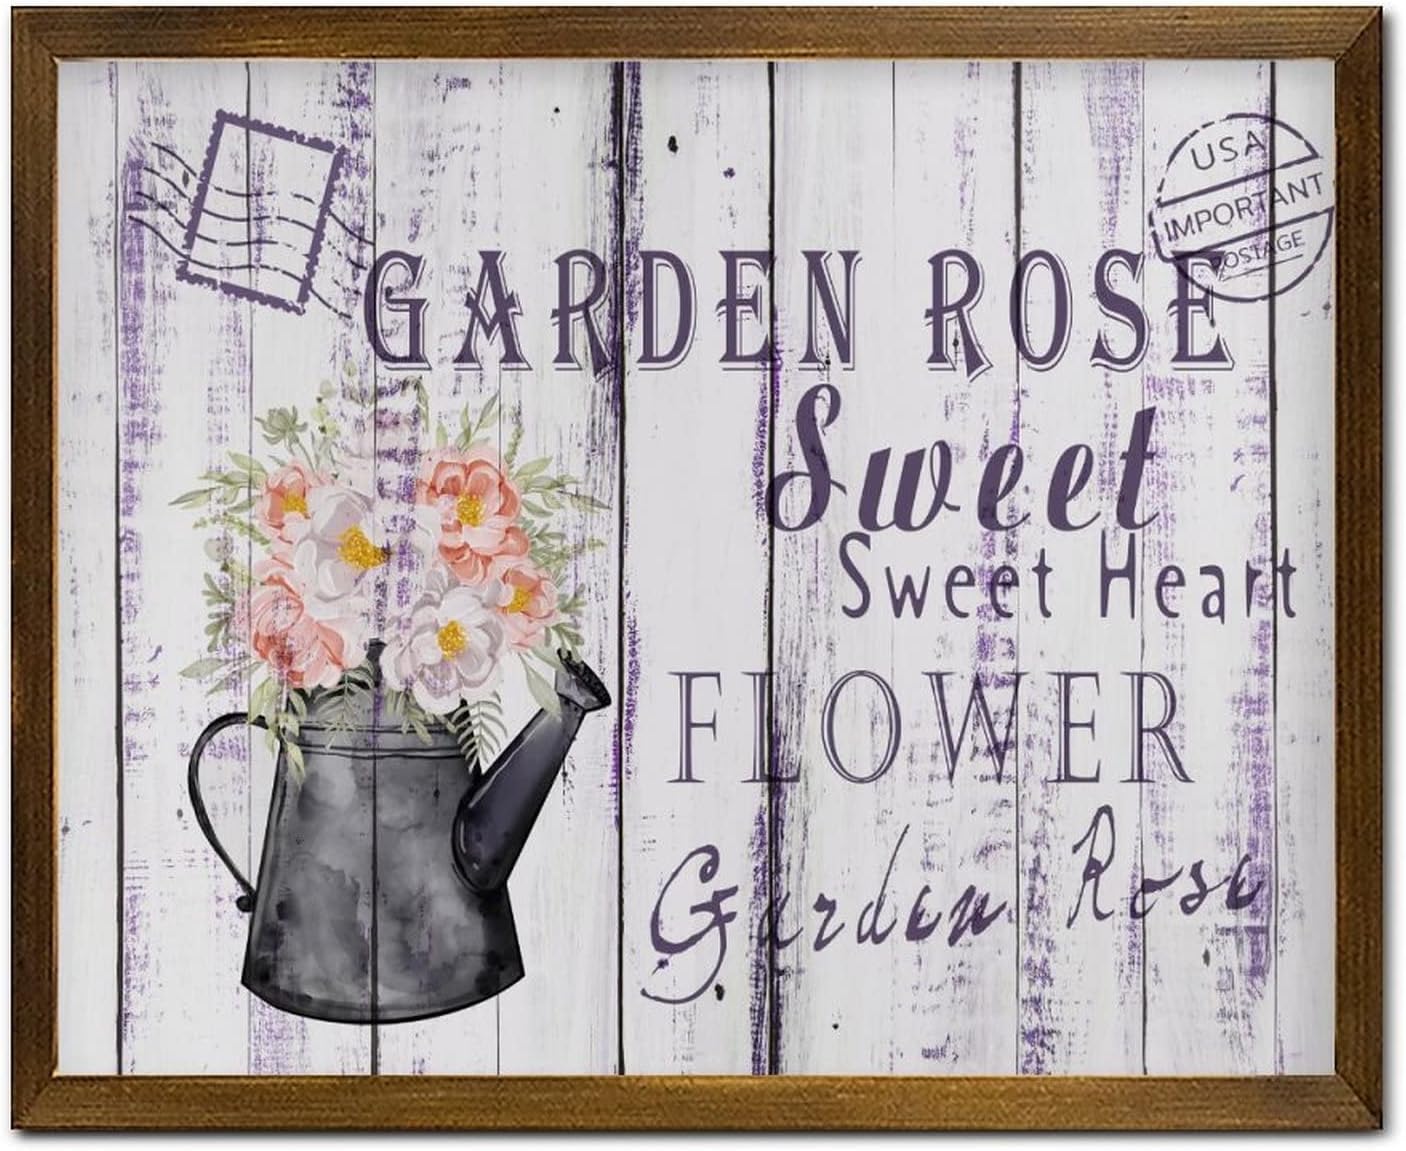 USA
IMPORTANT
POSTAGE
GARDEN ROSE
Sweet
Sweet Heart
FLOWER
Garden Rose